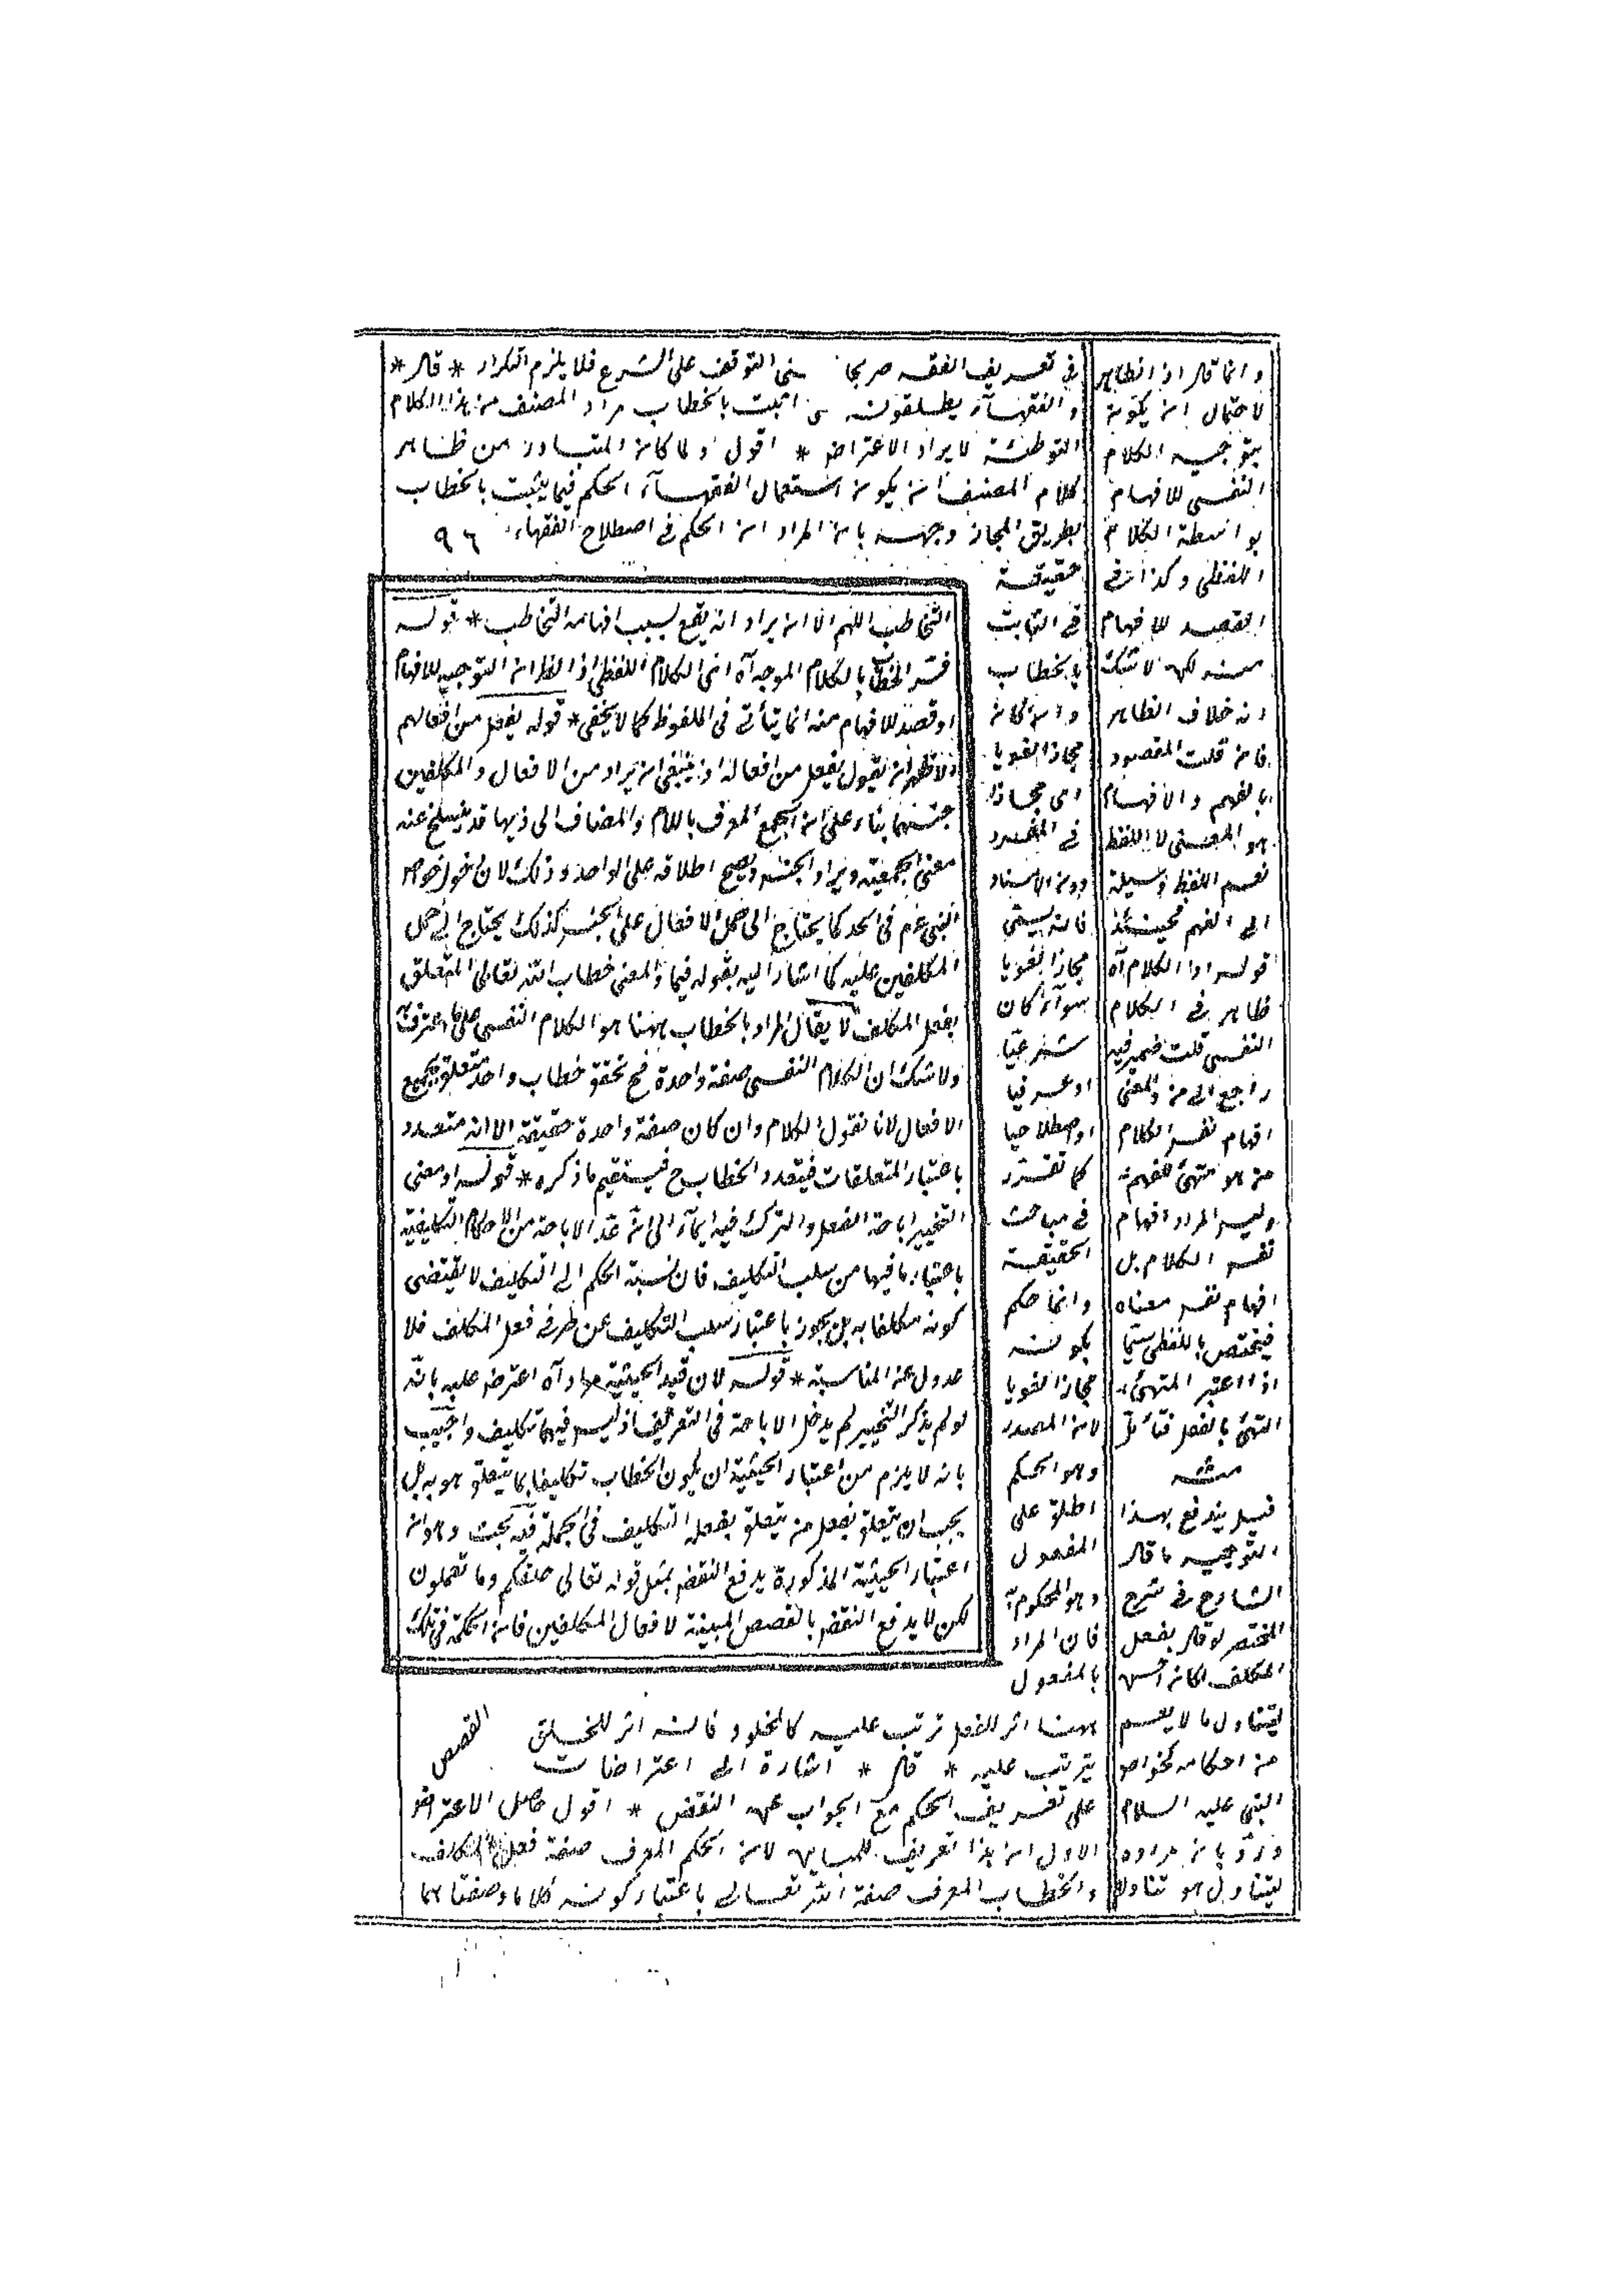 في تعريف الفقه صريحا بنى التوقف على الشرع فلا يلزم التكرار * قال *
والفقهآء يطلقونه اثبت بالخطاب مراد المصنف من هذا الكلام
التوطئة لايراد الاعتراض * اقول ولما كان المتبادر من ظاهر
كلام المصنف ان يكون استعمال الفقهآء الحكم فيما يثبت بالخطاب
بطريق المجاز وجهه بان المراد ان الحكم في اصطلاح الفقهاء
٩٦
حقيقة
في الثابت
بالخطاب
وان كان
مجازا لغويا
اى مجازا
في المفرد
دون الاسناد
فانه يسمى
مجازا لغويا
سوآء كان
شرعيا
او عرفيا
او اصطلاحيا
كما تقرر
في مباحث
الحقيقة
وانما حكم
بكونه
مجازا لغويا
لان المصدر
وهو الحكم
اطلق على
المفعول
وهو المحكوم به
فان المراد
بالمفعول
ههنا اثر للفعل ترتب عليه كالمخلوق فانه اثر للخلق
يترتب عليه * قال * اشارة الى اعتراضات
على تعريف الحكم مع الجواب عن النقض * اقول حاصل الاعتراض
الاول ان هذا تعريف للمباين لان الحكم المعرف صفة فعل المكلف
والخطاب المعرف صفة الله تعالى باعتبار كونه كلاما وصفتاهما
التخاطب اللهم الا ان يراد انه يقع بسبب افهامه التخاطب * قوله
فسر الخطاب بالكلام الموجه آه اى الكلام اللفظى اذ الظ ان التوجيه للافهام
او قصد الافهام منه انما يتأتى في الملفوظ كما لا يخفى * قوله بفعل من افعالهم
الاظهر ان يقول بفعل من افعاله اذ ينبغى ان يراد من الافعال والمكلفين
جنسهما بناء على ان الجمع المعرف باللام والمضاف الى ذيها قد ينسلخ عنه
معنى الجمعية ويراد الجنس ويصح اطلاقه على الواحد وذلك لان دخول خواص
النبى عم في الحد كما يحتاج الى حمل الافعال على الجنس كذلك يحتاج الى حمل
المكلفين عليه كما اشار اليه بقوله فيما والمعنى خطاب الله تعالى المتعلق
بفعل المكلف لا يقال المراد بالخطاب ههنا هو الكلام النفسى على ما اعترفت
ولا شك ان الكلام النفسى صفة واحدة فح تحقق خطاب واحد متعلق بجميع
الافعال لانا نقول الكلام وان كان صفة واحدة حقيقة الا انه متعدد
باعتبار المتعلقات فيتعدد الخطاب ح فيستقيم ما ذكره * قوله او معنى
التخيير اباحة الفعل والترك فيه ايمآء الى انه عد الاباحة من الاحكام التكليفية
باعتبار ما فيها من سلب التكليف فان نسبة الحكم الى التكليف لا يقتضى
كونه مكلفا به بل يجوز باعتبار سلب التكليف عن طرفى فعل المكلف فلا
عدول عن المناسبة * قوله لان قيد الحيثية مراد آه اعترض عليه بانه
لو لم يذكر التخيير لم يدخل الاباحة في التعريف اذ ليس فيها تكليف واجيب
بانه لا يلزم من اعتبار الحيثية ان يكون الخطاب تكليفا بما يتعلق هو به بل
يجب ان يتعلق بفعل من يتعلق بفعله التكليف في الجملة فيه بحث وهو ان
اعتبار الحيثية المذكورة يدفع النقض بمثل قوله تعالى خلقكم وما تعملون
لكن لا يدفع النقض بالقصص المبينة لافعال المكلفين فان الحكمة في تلك
القصص
وانما قال اذ الظاهر
لاحتمال ان يكون
بتوجيه الكلام
النفسى للافهام
بواسطة الكلام
اللفظى وكذا في
القصد للافهام
منه لكن لا شك
انه خلاف الظاهر
فان قلت المقصود
بالفهم والافهام
هو المعنى لا اللفظ
نعم اللفظ وسيلة
الى الفهم فحينئذ
قوله اذ الكلام آه
ظاهر في الكلام
النفسى قلت ضمير فيه
راجع الى من والمعنى
افهام نفس الكلام
من هو متهيئ لفهمه
وليس المراد افهام
نفس الكلام بل
افهام نفس معناه
فيختص باللفظى سيما
اذا اعتبر المتهيئ
التهيئ بالفعل فتأمل
منه
قيل يندفع بهذا
التوجيه ما قال
الشارح في شرح
المختصر لو قال بفعل
المكلف لكان احسن
ليتناول ما لا يعم
من احكامه كخواص
النبى عليه السلام
ورد بان مراده
ليتناول هو تناولا